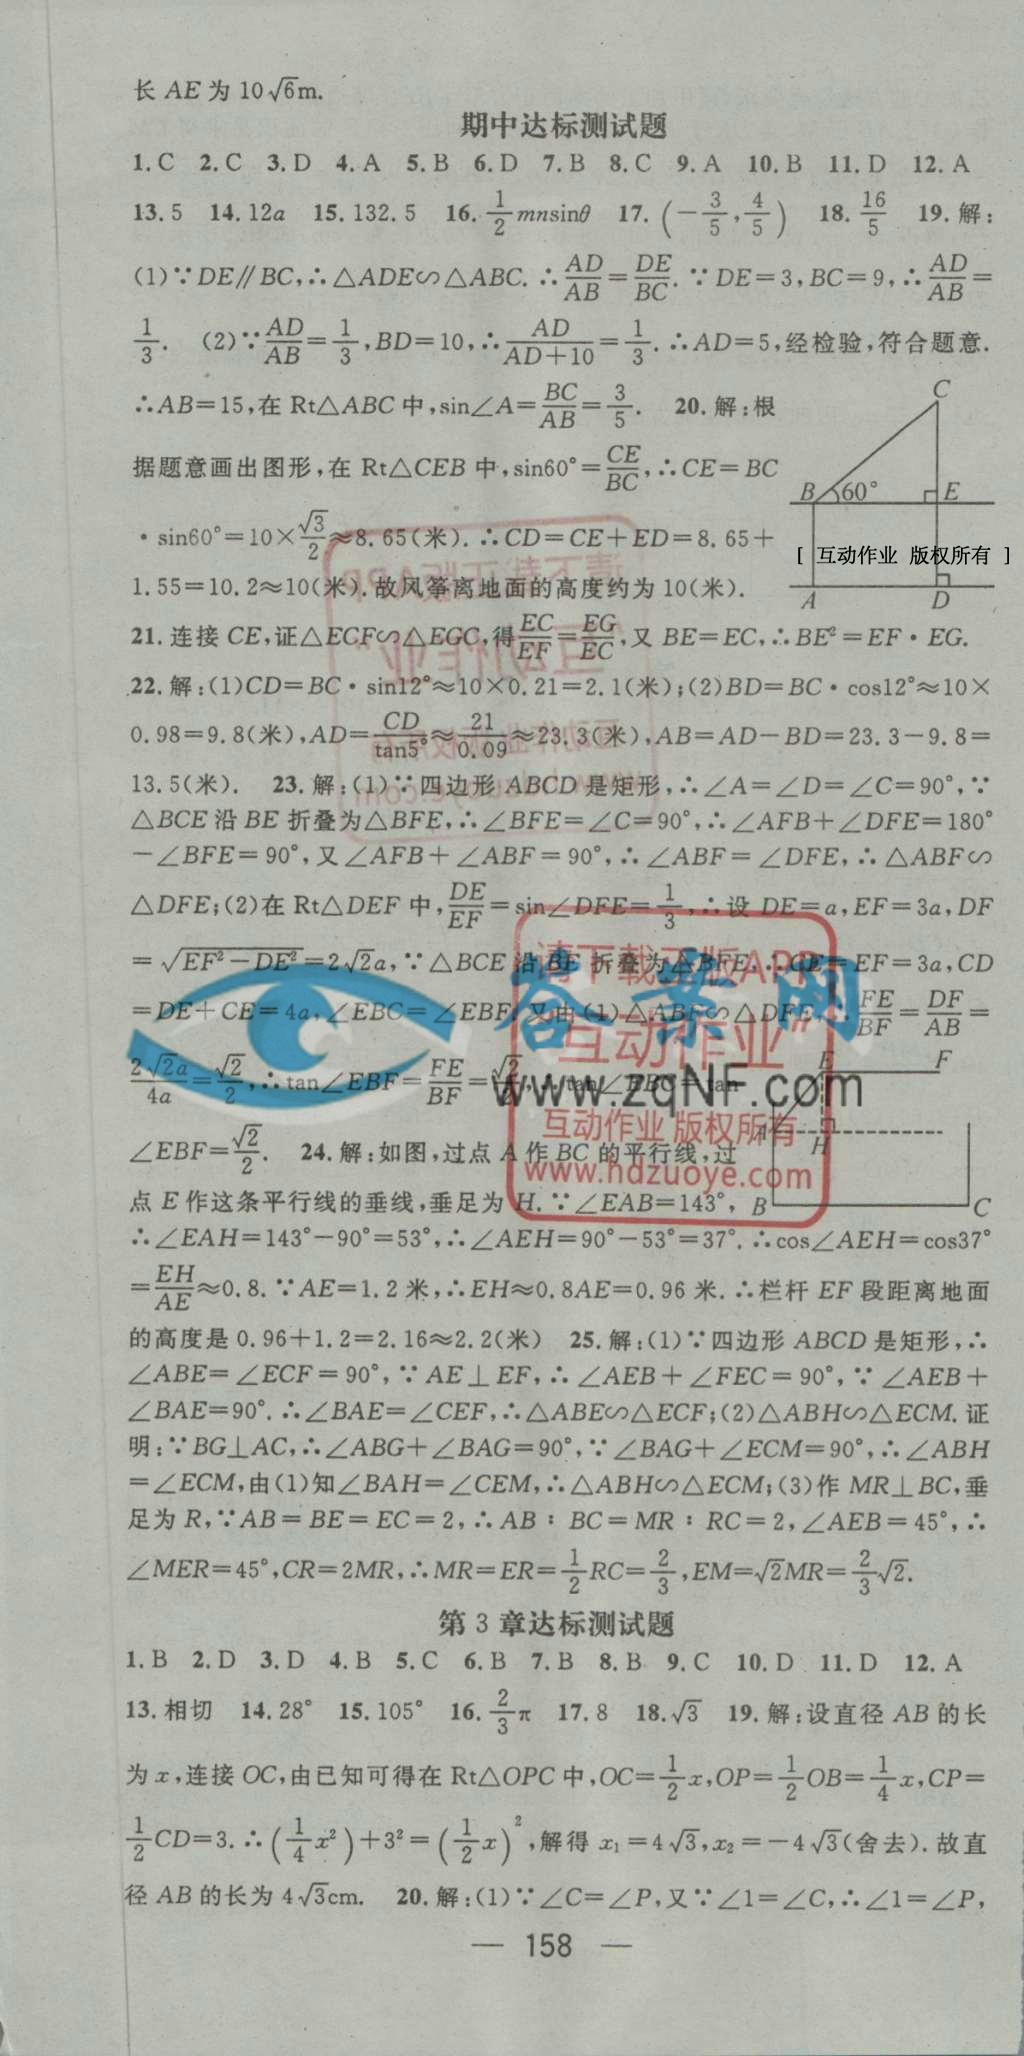 长 AE 为 10√6m.
期中达标测试题
1. C 2. C 3. D 4. A 5. B 6. D 7. B 8. C 9. A 10. B 11. D 12. A
13. 5 14. 12a 15. 132.5 16. 1/2 mnsinθ 17. (-3/5, 4/5) 18. 16/5 19. 解:
(1)∵DE∥BC,∴△ADE∽△ABC. ∴AD/AB=DE/BC. ∵DE=3,BC=9,∴AD/AB=
1/3. (2)∵AD/AB=1/3,BD=10,∴AD/(AD+10)=1/3. ∴AD=5,经检验,符合题意.
∴AB=15,在 Rt△ABC 中,sin∠A=BC/AB=3/5. 20. 解:根
据题意画出图形,在 Rt△CEB 中,sin60°=CE/BC,∴CE=BC
·sin60°=10×√3/2≈8.65(米). ∴CD=CE+ED=8.65+
1.55=10.2≈10(米).故风筝离地面的高度约为 10(米).
C
B 60° E
[ 互动作业 版权所有 ]
A D
21. 连接 CE,证△ECF∽△EGC,得EC/EF=EG/EC,又 BE=EC,∴BE²=EF·EG.
22. 解:(1)CD=BC·sin12°≈10×0.21=2.1(米);(2)BD=BC·cos12°≈10×
0.98=9.8(米),AD=CD/tan5°≈21/0.09≈23.3(米),AB=AD-BD=23.3-9.8=
13.5(米). 23. 解:(1)∵四边形 ABCD 是矩形,∴∠A=∠D=∠C=90°,∵
△BCE 沿 BE 折叠为△BFE,∴∠BFE=∠C=90°,∴∠AFB+∠DFE=180°
-∠BFE=90°,又∠AFB+∠ABF=90°,∴∠ABF=∠DFE,∴△ABF∽
△DFE;(2)在 Rt△DEF 中,DE/EF=sin∠DFE=1/3,∴设 DE=a,EF=3a,DF
=√(EF²-DE²)=2√2a,∵△BCE 沿 BE 折叠为△BFE,∴CE=EF=3a,CD
=DE+CE=4a,∠EBC=∠EBF,又由(1)△ABF∽△DFE,∴FE/BF=DF/AB=
2√2a/4a=√2/2,∴tan∠EBF=FE/BF=√2/2,∴tan∠EBC=tan
∠EBF=√2/2. 24. 解:如图,过点 A 作 BC 的平行线,过
点 E 作这条平行线的垂线,垂足为 H. ∵∠EAB=143°,
E F
A H
B C
∴∠EAH=143°-90°=53°,∴∠AEH=90°-53°=37°. ∴cos∠AEH=cos37°
=EH/AE≈0.8. ∵AE=1.2 米,∴EH≈0.8AE=0.96 米. ∴栏杆 EF 段距离地面
的高度是 0.96+1.2=2.16≈2.2(米) 25. 解:(1)∵四边形 ABCD 是矩形,∴
∠ABE=∠ECF=90°,∵AE⊥EF,∴∠AEB+∠FEC=90°,∵∠AEB+
∠BAE=90°. ∴∠BAE=∠CEF,∴△ABE∽△ECF;(2)△ABH∽△ECM. 证
明:∵BG⊥AC,∴∠ABG+∠BAG=90°,∵∠BAG+∠ECM=90°,∴∠ABH
=∠ECM,由(1)知∠BAH=∠CEM,∴△ABH∽△ECM;(3)作 MR⊥BC,垂
足为 R,∵AB=BE=EC=2,∴AB∶BC=MR∶RC=2,∠AEB=45°,∴
∠MER=45°,CR=2MR,∴MR=ER=1/2RC=2/3,EM=√2MR=2/3√2.
第 3 章达标测试题
1. B 2. D 3. D 4. B 5. C 6. B 7. B 8. B 9. C 10. D 11. D 12. A
13. 相切 14. 28° 15. 105° 16. 2/3π 17. 8 18. √3 19. 解:设直径 AB 的长
为 x,连接 OC,由已知可得在 Rt△OPC 中,OC=1/2x,OP=1/2OB=1/4x,CP=
1/2CD=3. ∴(1/4x²)+3²=(1/2x)²,解得 x₁=4√3,x₂=-4√3(舍去).故直
径 AB 的长为 4√3cm. 20. 解:(1)∵∠C=∠P,又∵∠1=∠C,∴∠1=∠P,
— 158 —
请下载正版APP
互动作业
互动作业 版权所有
www.hdzuoye.com
答案网
www.zqNF.com